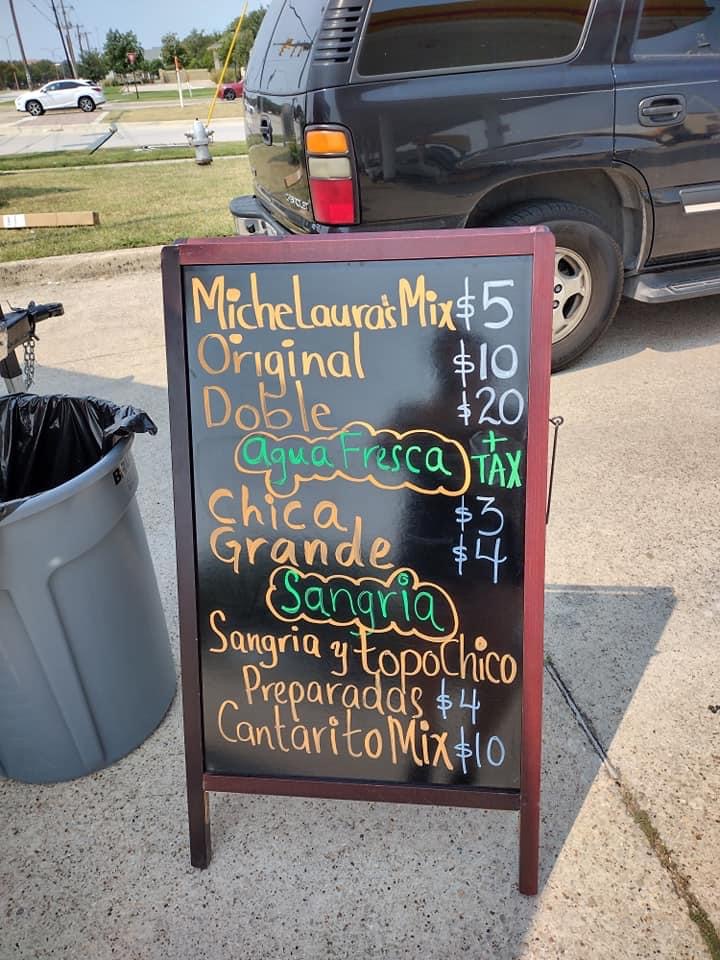 MicheLaura's Mix $5
Original $10
Doble $20
Agua Fresca + TAX
Chica $3
Grande $4
Sangria
Sangria y topoChico
Preparadas $4
Cantarito Mix $10